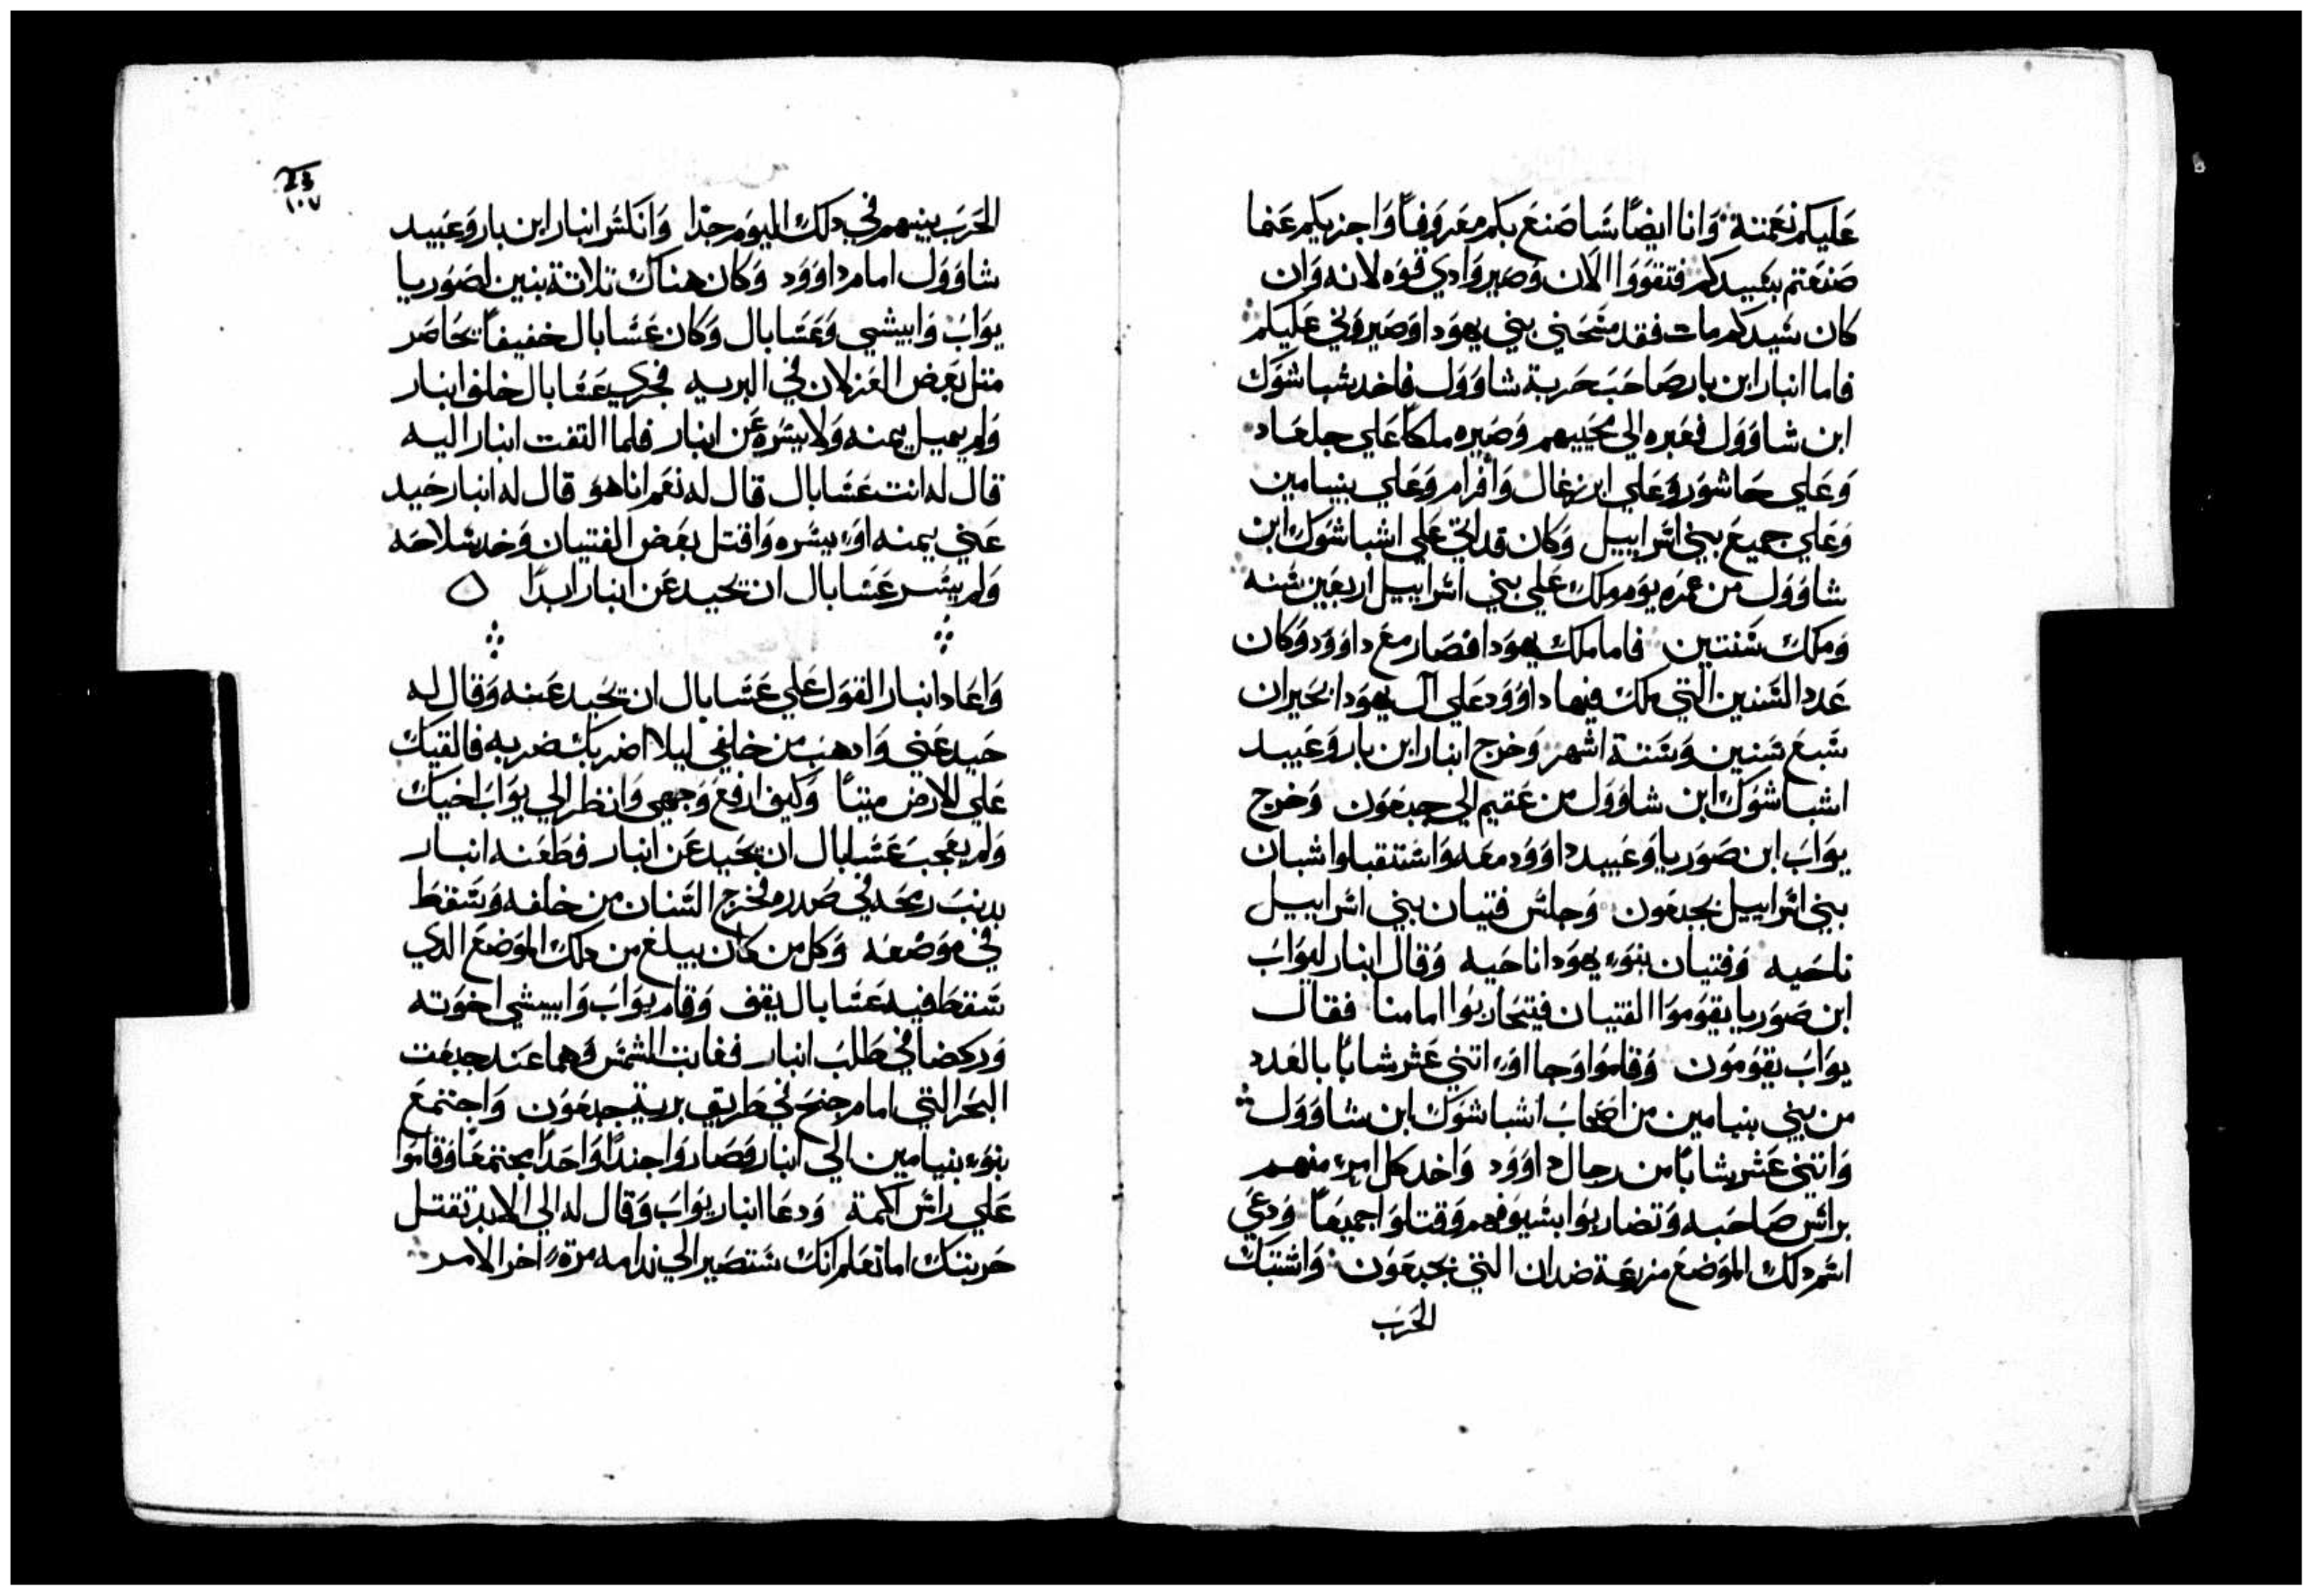 عليكم نعمته وانا ايضًا سا صنع بكم معروفاً واجزيكم عنما
صنعتم بكبيدكم فتقووا الان وصيروا دي قوه لانه وان
كان سيدكم مات فقد مسحني بني يهودا وصيروني عليكم
فاما انبار ابن بار صاحب حربة شاوول فاخد شباشوك
ابن شاوول فعبره الي محييهم وصيره ملكاً علي جلعاد
وعلي حاشور وعلي ابرغال وافرام وعلي بنيامين
وعلي جميع بني اسراييل وكان قد اتي علي اشباشوك ابن
شاوول من عمره يوم ملك علي بني اسراييل اربعين سنه
وملك سنتين فاما ملك يهودا فصار مع داوود وكان
عدد السنين التي ملك فيها داوود علي آل يهودا بحيران
سبع سنين وستة اشهر وخرج انبار ابن بار وعبيد
اشباشوك ابن شاوول من عقيم الي جبعون وخرج
يواب ابن صوريا وعبيد داوود معه واستقبلوا شبان
بني اسراييل بجبعون وجلس فتيان بني اسراييل
ناحيه وفتيان بنوء يهودا ناحيه وقال انبار ليواب
ابن صوريا يقوموا الفتيان فيتحاربوا امامنا فقال
يواب يقومون وقاموا وجااوء اتني عشر شابًا بالعدد
من بني بنيامين من اصحاب اشباشوك ابن شاوول
واتني عشر شابًا من رجال داوود واخد كل امرء منهم
براس صاحبه وتضاربوا بسيوفهم وقتلوا جميعاً ودعي
اسم دلك الموضع مزرعة ضدان التي بجبعون واشتبك
الحرب
الحرب بينهم في دلك اليوم جدّا وانكسر انبار ابن بار وعبيد
شاوول امام داوود وكان هناك تلاتة بنين لصوريا
يواب وابيشي وعسابال وكان عسابال خفيفاً بحاضر
متل بعض الغزلان في البريه فجري عسابال خلف انبار
ولم يميل يمنه ولا يسره عن انبار فلما التفت انبار اليه
قال له انت عسابال قال له نعم انا هو قال له انبار حيد
عني يمنه اوء يسره واقتل بعض الفتيان وخد سلاحه
ولم يسر عسابال ان يحيد عن انبار ابدًا ه
واعاد انبار القول علي عسابال ان يحيد عنه وقال له
حيد عني وادهب من خلفي ليلا اضربك ضربه فالقيك
علي الارض ميتاً وكيف ارفع وجهي وانظر الي يواب اخيك
ولم يعجب عسابال ان يحيد عن انبار فطعنه انبار
بدنب رمحه في صدره فخرج السنان من خلفه وسقط
في موضعه وكل من كان يبلغ من دلك الموضع الدي
سقط فيه عسابال يقف وقام يواب وابيشي اخوته
وركضا في طلب انبار فغابت الشمس وهما عند جبعت
البحر التي امام جنح في طريق برية جبعون واجتمع
بنوء بنيامين الي انبار وصاروا جنداً واحداً مجتمعاً وقاموا
علي راس اكمة ودعا انبار يواب وقال له الي الابد تقتل
حربتك اما تعلم انك ستصير الي ندامه مرة اخر الامر